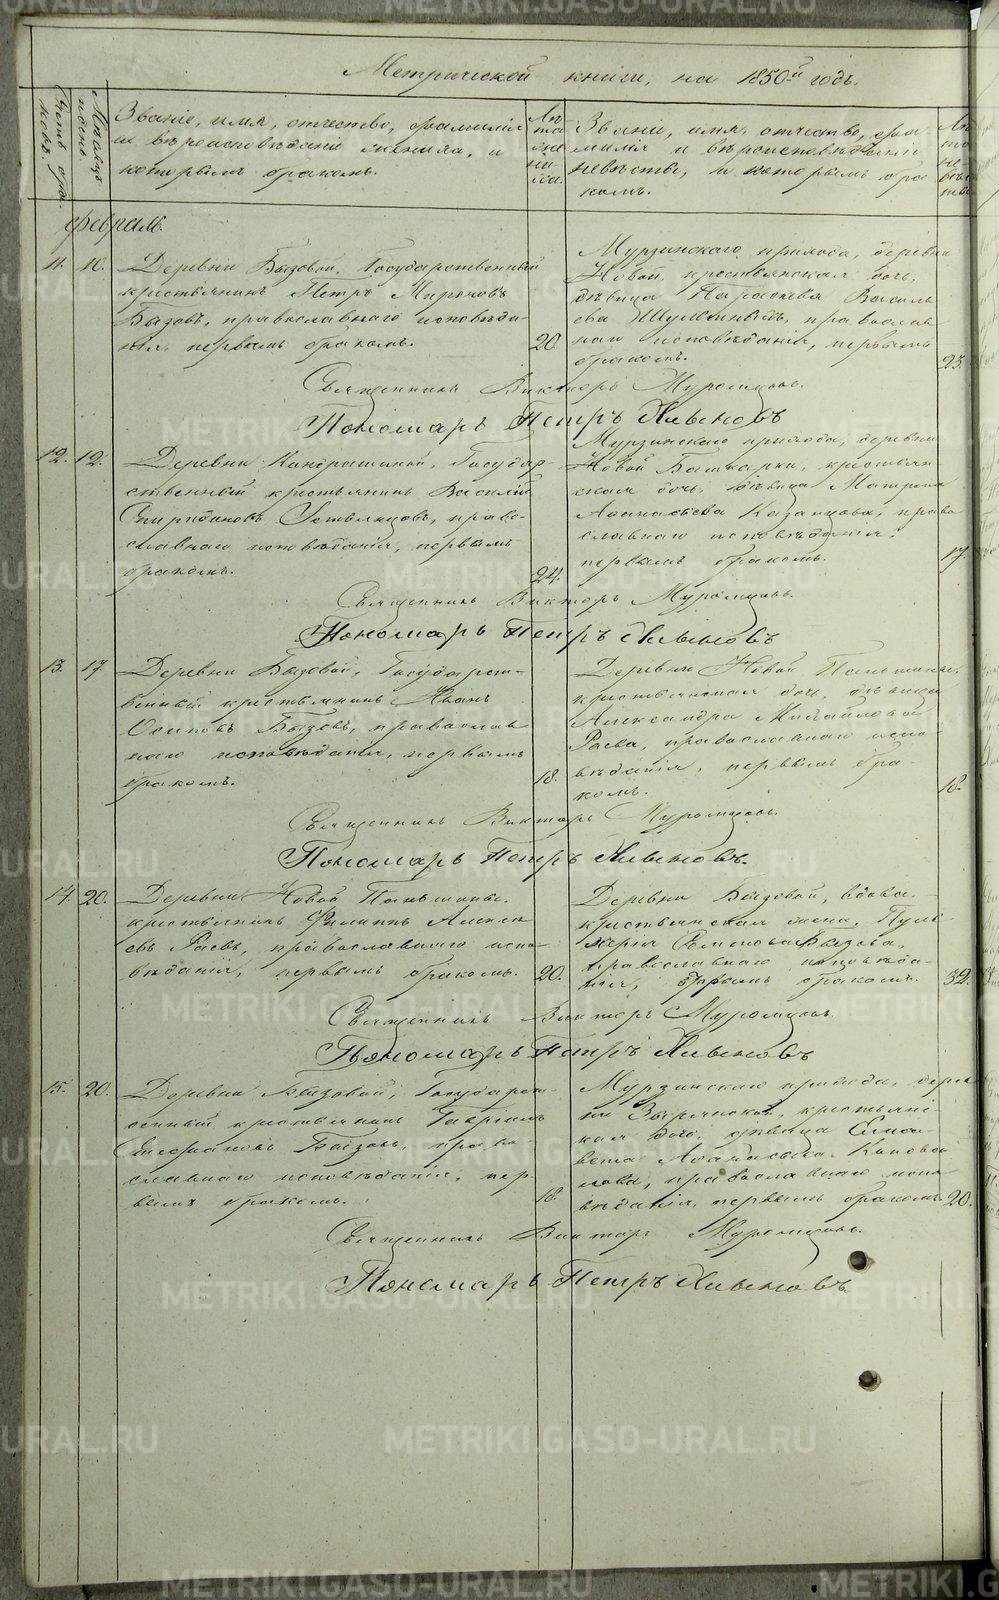 Метрической книги, на 1850й годъ.
Счетъ бра
ковъ.
Мѣсяцъ
и день
Званіе, имя, отчество, фамилія
и вѣроисповѣданіе жениха, и
которымъ бракомъ.
Лѣ
та
же
ни
ха.
Званіе, имя, отчество, фа
милія и вѣроисповѣданіе
невѣсты, и которымъ бра
комъ.
Лѣ
та
не
вѣс
ты.
Февраль.
11. 11. Деревни Бызовой, Государственный
крестьянинъ Петръ Мироновъ
Бызовъ, православнаго исповѣда-
нія, первымъ бракомъ. 20.
Мурзинскаго прихода, деревни
Новой, крестьянская дочь,
дѣвица Параскева Василь
ева православ
наго исповѣданія, первымъ
бракомъ. 23.
Священникъ Викторъ Муромцовъ.
Пономарь Петръ Хлыновъ
12. 12. Деревни Кондрашиной, Государ-
ственный крестьянинъ Василій
Спиридоновъ Устьянцовъ, право-
славнаго исповѣданія, первымъ
бракомъ. 24.
Мурзинскаго прихода, деревни
Новой Башкарки, крестьян-
ская дочь, дѣвица Матрена
Аѳанасьева Казанцова, право
славнаго исповѣданія,
первымъ бракомъ. 17.
Священникъ Викторъ Муромцовъ.
Пономарь Петръ Хлыновъ
13. 17. Деревни Бызовой, Государст-
венный крестьянинъ Иванъ
Осиповъ Бызовъ, православ
наго исповѣданія, первымъ
бракомъ. 18.
Деревни Новой Паньшины,
крестьянская дочь, дѣвица
Александра Михайлова
Раева, православнаго испо-
вѣданія, первымъ бра-
комъ. 18.
Священникъ Викторъ Муромцовъ.
Пономарь Петръ Хлыновъ.
14. 20. Деревни Новой Паньшины,
крестьянинъ Филиппъ Алексѣ
евъ Раевъ, православнаго испо-
вѣданія, первымъ бракомъ. 20.
Деревни Бызовой, вдова-
крестьянская жена, Пуль-
херія Семенова Бызова,
православнаго исповѣда-
нія, вторымъ бракомъ. 32.
Священникъ Викторъ Муромцовъ.
Пономарь Петръ Хлыновъ
15. 20. Деревни Бызовой, Государст-
венный крестьянинъ Гавріилъ
Стефановъ Бызовъ, право
славнаго исповѣданія, пер-
вымъ бракомъ. 18.
Мурзинскаго прихода, дерев
ни Зырянской, крестьянс-
кая дочь, дѣвица Елиса-
вета Аѳанасьева
православнаго испо
вѣданія, первымъ бракомъ 20.
Священникъ Викторъ Муромцовъ.
Пономарь Петръ Хлыновъ
METRIKI.GASO-URAL.RU